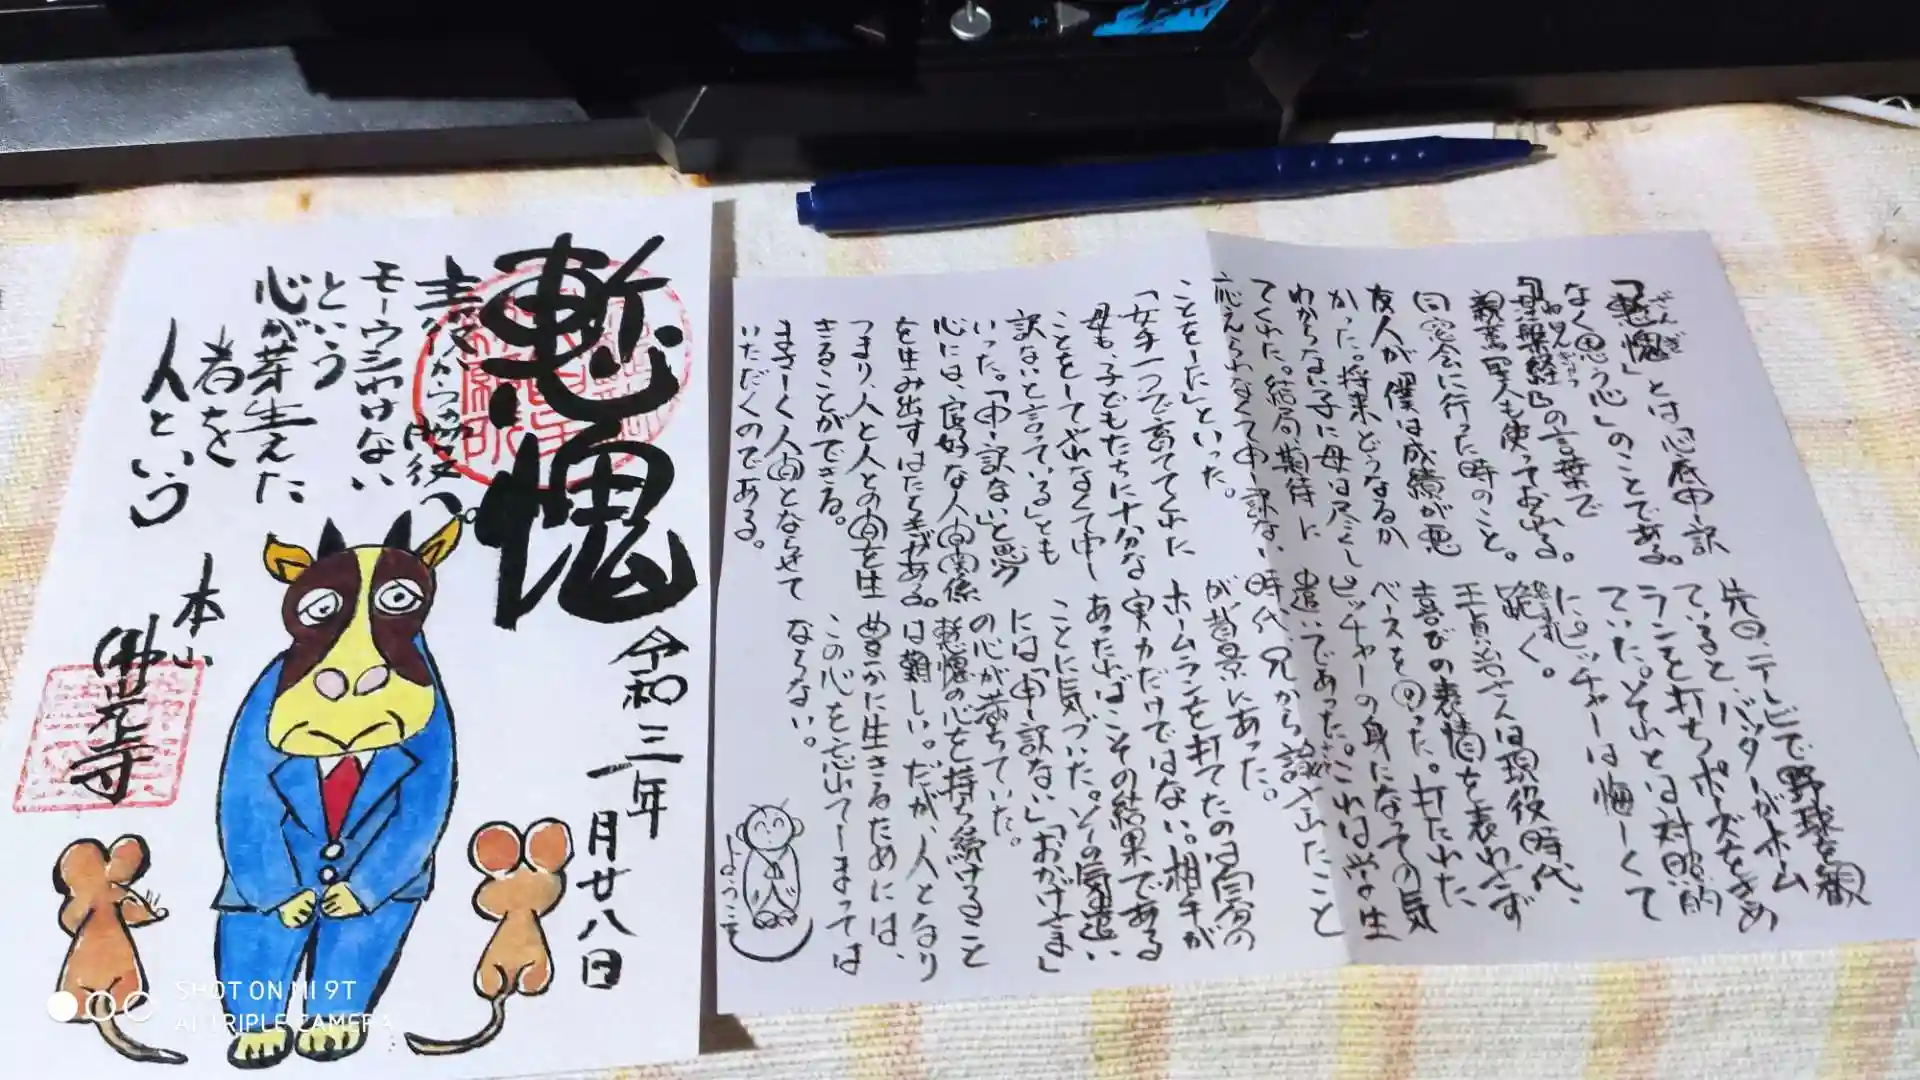 慚愧
モーウシわけない
という
心が芽生えた
者を
人という
令和三年
一月廿八日
本山
佛光寺
「慙愧」とは「心底申し訳
ぜんぎ
なく思う心」のことである。
『涅槃経』の言葉で
ねはんぎょう
親鸞聖人も使っておられる。
同窓会に行った時のこと。
友人が「僕は成績が悪
かった。将来どうなるか
わからない子に母は尽くし
てくれた。結局、期待に
応えられなくて申し訳ない
ことをした」といった。
「女手一つで育ててくれた
母も、子どもたちに十分な
ことをしてやれなくて申し
訳ないと言っている」とも
いった。「申し訳ない」と思う
心には、良好な人間関係
を生み出すはたらきがある。
つまり、人と人との間を生
きることができる。
まさしく人間とならせて
いただくのである。
先日、テレビで野球を観
ていると、バッターがホーム
ランを打ちポーズをきめ
ていた。それとは対照的
に、ピッチャーは悔しくて
跪く。
王貞治さんは現役時代、
喜びの表情を表わさず
ベースを回った。打たれた
ピッチャーの身になっての気
遣いであった。これは学生
時代、兄から諭されたこと
が背景にあった。
ホームランを打てたのは自分の
実力だけではない。相手が
あったればこその結果である
ことに気づいた。その気遣い
には「申し訳ない」「おかげさま」
の心が満ちていた。
慙愧の心を持ち続けること
は難しい。だが、人となり
めざかに生きるためには、
この心を忘れてしまっては
ならない。
ようこそ
SHOT ON MI 9T
AI TRIPLE CAMERA